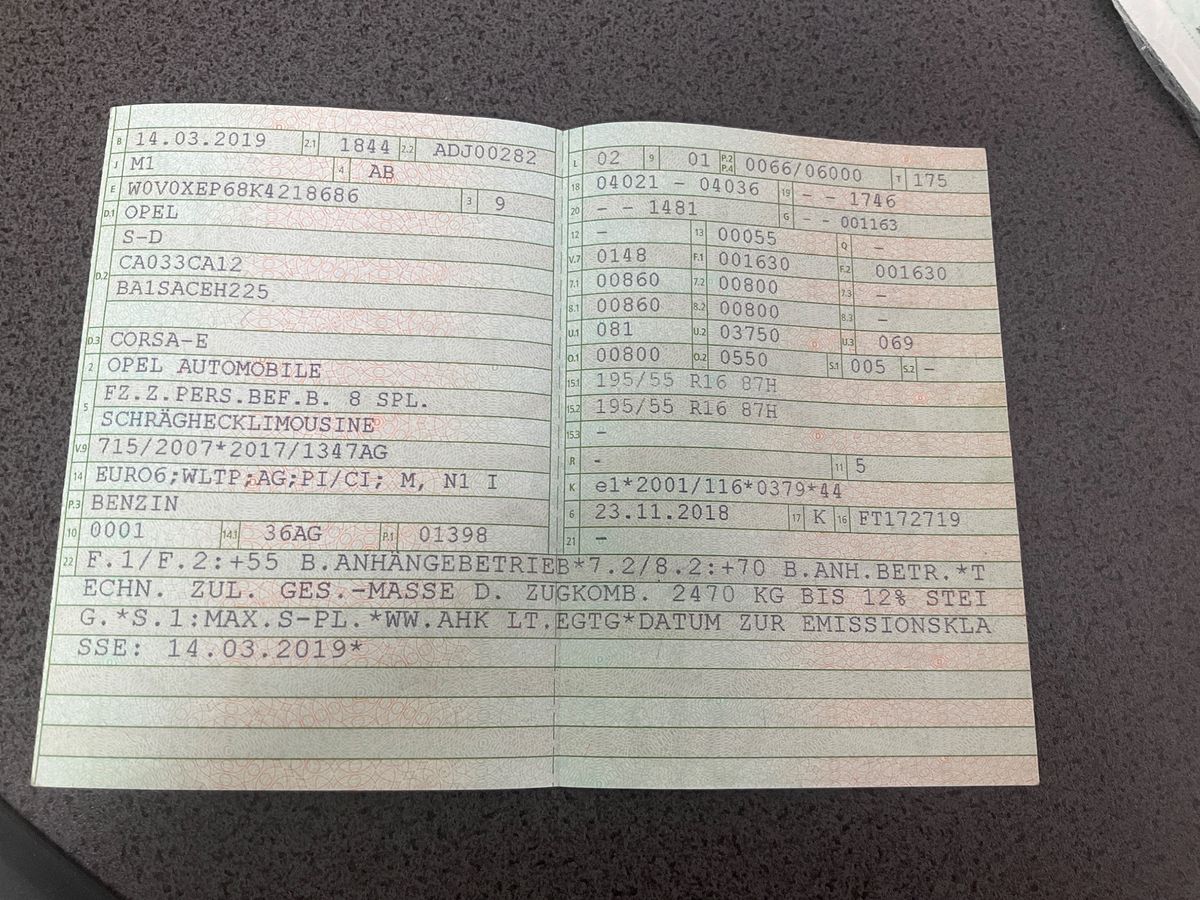 B 14.03.2019 2.1 1844 2.2 ADJ00282
J M1 4 AB
E W0V0XEP68K4218686 3 9
D.1 OPEL
D.2 S-D
CA033CA12
BA1SACEH225
D.3 CORSA-E
2 OPEL AUTOMOBILE
5 FZ.Z.PERS.BEF.B. 8 SPL.
SCHRÄGHECKLIMOUSINE
V.9 715/2007*2017/1347AG
14 EURO6;WLTP;AG;PI/CI; M, N1 I
P.3 BENZIN
10 0001 14.1 36AG P.1 01398
L 02 9 01 P.2 P.4 0066/06000 T 175
18 04021 - 04036 19 - - 1746
20 - - 1481 G - - 001163
12 - 13 00055 Q -
V.7 0148 F.1 001630 F.2 001630
7.1 00860 7.2 00800 7.3 -
8.1 00860 8.2 00800 8.3 -
U.1 081 U.2 03750 U.3 069
O.1 00800 O.2 0550 S.1 005 S.2 -
15.1 195/55 R16 87H
15.2 195/55 R16 87H
15.3 -
R - 11 5
K e1*2001/116*0379*44
6 23.11.2018 17 K 16 FT172719
21 -
22 F.1/F.2:+55 B.ANHÄNGEBETRIEB*7.2/8.2:+70 B.ANH.BETR.*T
ECHN. ZUL. GES.-MASSE D. ZUGKOMB. 2470 KG BIS 12% STEI
G.*S.1:MAX.S-PL.*WW.AHK LT.EGTG*DATUM ZUR EMISSIONSKLA
SSE: 14.03.2019*